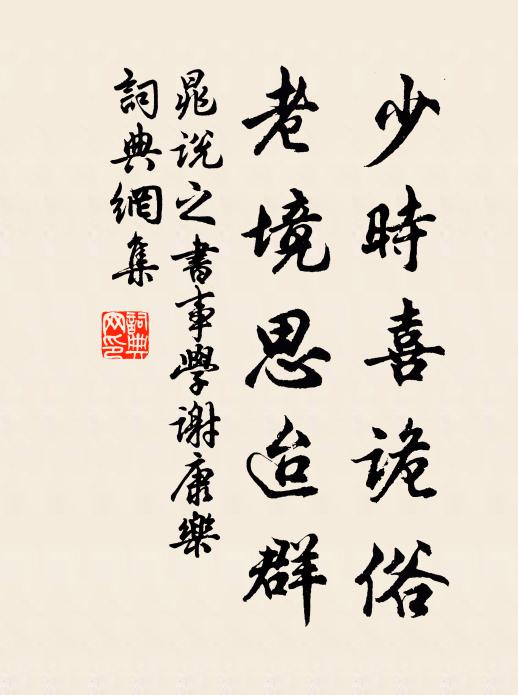 少時喜詭俗
老境思迨群
晁説之書事學謝康樂
詞典網集
詞典网印